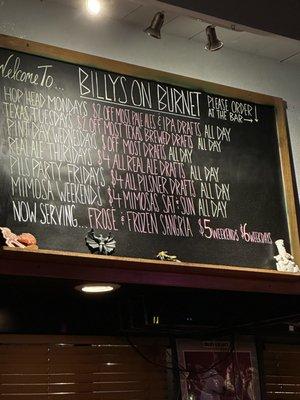 Welcome To...
BILLY'S ON BURNET
PLEASE ORDER
AT THE BAR →
HOP HEAD MONDAYS $2 OFF MOST PALE ALES & IPA DRAFTS ALL DAY
TEXAS TUESDAYS $2 OFF MOST TEXAS BREWED DRAFTS ALL DAY
PINT WEDNESDAYS $3 OFF MOST DRAFTS ALL DAY
REAL ALE THURSDAYS $4 ALL REAL ALE DRAFTS ALL DAY
PILS PARTY FRIDAYS $4 ALL PILSNER DRAFTS ALL DAY
MIMOSA WEEKENDS $4 MIMOSAS SAT & SUN ALL DAY
NOW SERVING... FROSÉ & FROZEN SANGRIA $5 WEEKENDS $6 WEEKDAYS